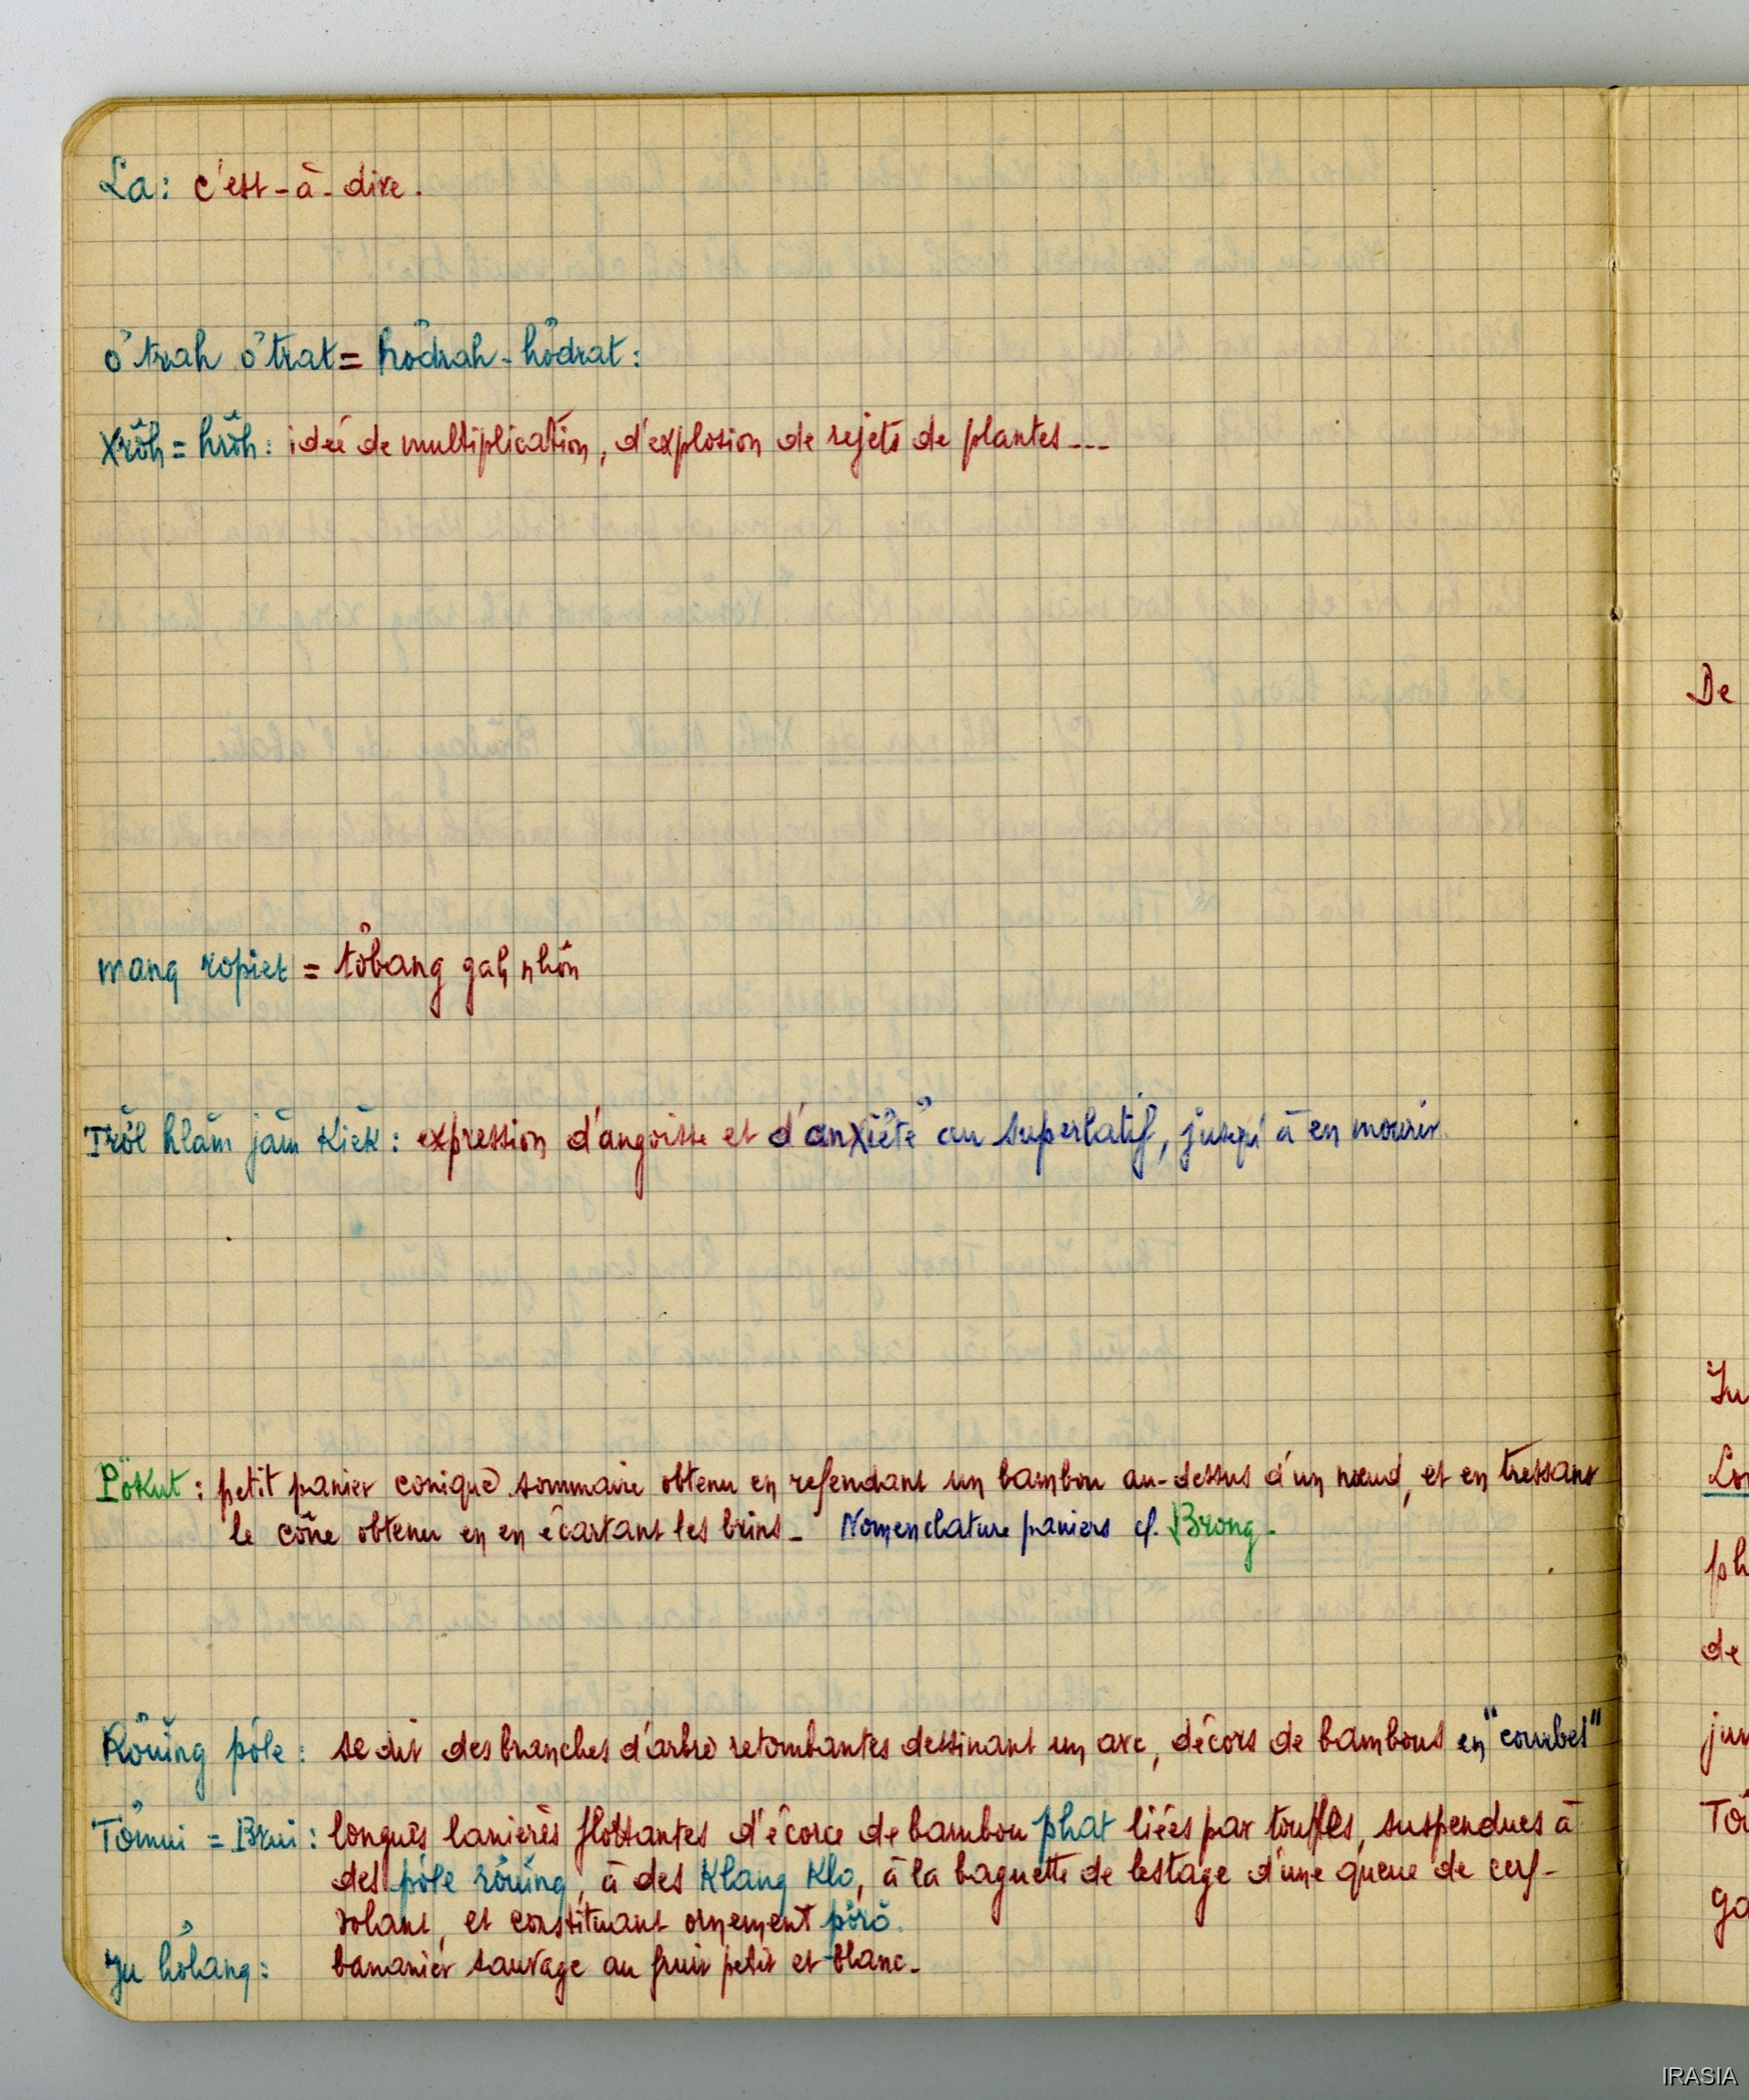 La: c'est-à-dire.
ơ̆trah ơ̆trat = hơ̆drah-hơ̆drat:
xrơ̆h = hrơ̆h: idée de multiplication, d'explosion de rejets de plantes ---
mang ropiet = tơ̆bang gah nhôn
Trơ̆l hlăm jăm kiĕk: expression d'angoisse et d'anxiété au superlatif, jusqu'à en mourir.
Pơ̆kut: petit panier conique sommaire obtenu en refendant un bambou au-dessus d'un nœud, et en tressant
le cône obtenu en en écartant les brins - Nomenclature paniers cf. Brong.
Rơ̆uĭng pơ̆le: se dit des branches d'arbre retombantes dessinant un arc, décors de bambous en "courbes"
Tơ̆mui = Brui: longues lanières flottantes d'écorce de bambou phat liées par touffes, suspendues à
des pơ̆le rơ̆uĭng, à des Klang Klo, à la baguette de lestage d'une queue de cerf-
volant, et constituant ornement pơ̆rŏ.
Ju hơ̆lang: bananier sauvage au fruit petit et blanc.
De
Ju
ph
de
jun
IRASIA